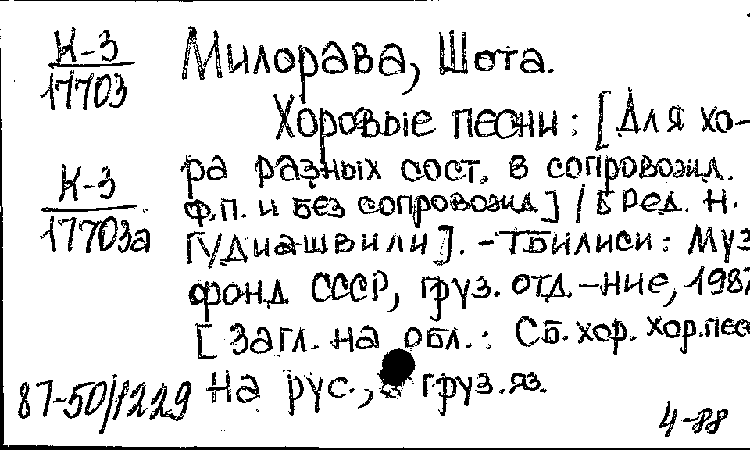 К-3 Милорава, Шота.
17703
Хоровые песни : [Для хо-
К-3 ра разных сост. в сопровожд.
17703а ф.п. и без сопровожд.] / [Ред. Н.
Гудиашвили]. - Тбилиси : Муз
фонд СССР, груз. отд.-ние, 1987
[Загл. на обл. : Сб. хор. хор. пес
87-50/1229 На рус., груз. яз.
4-88